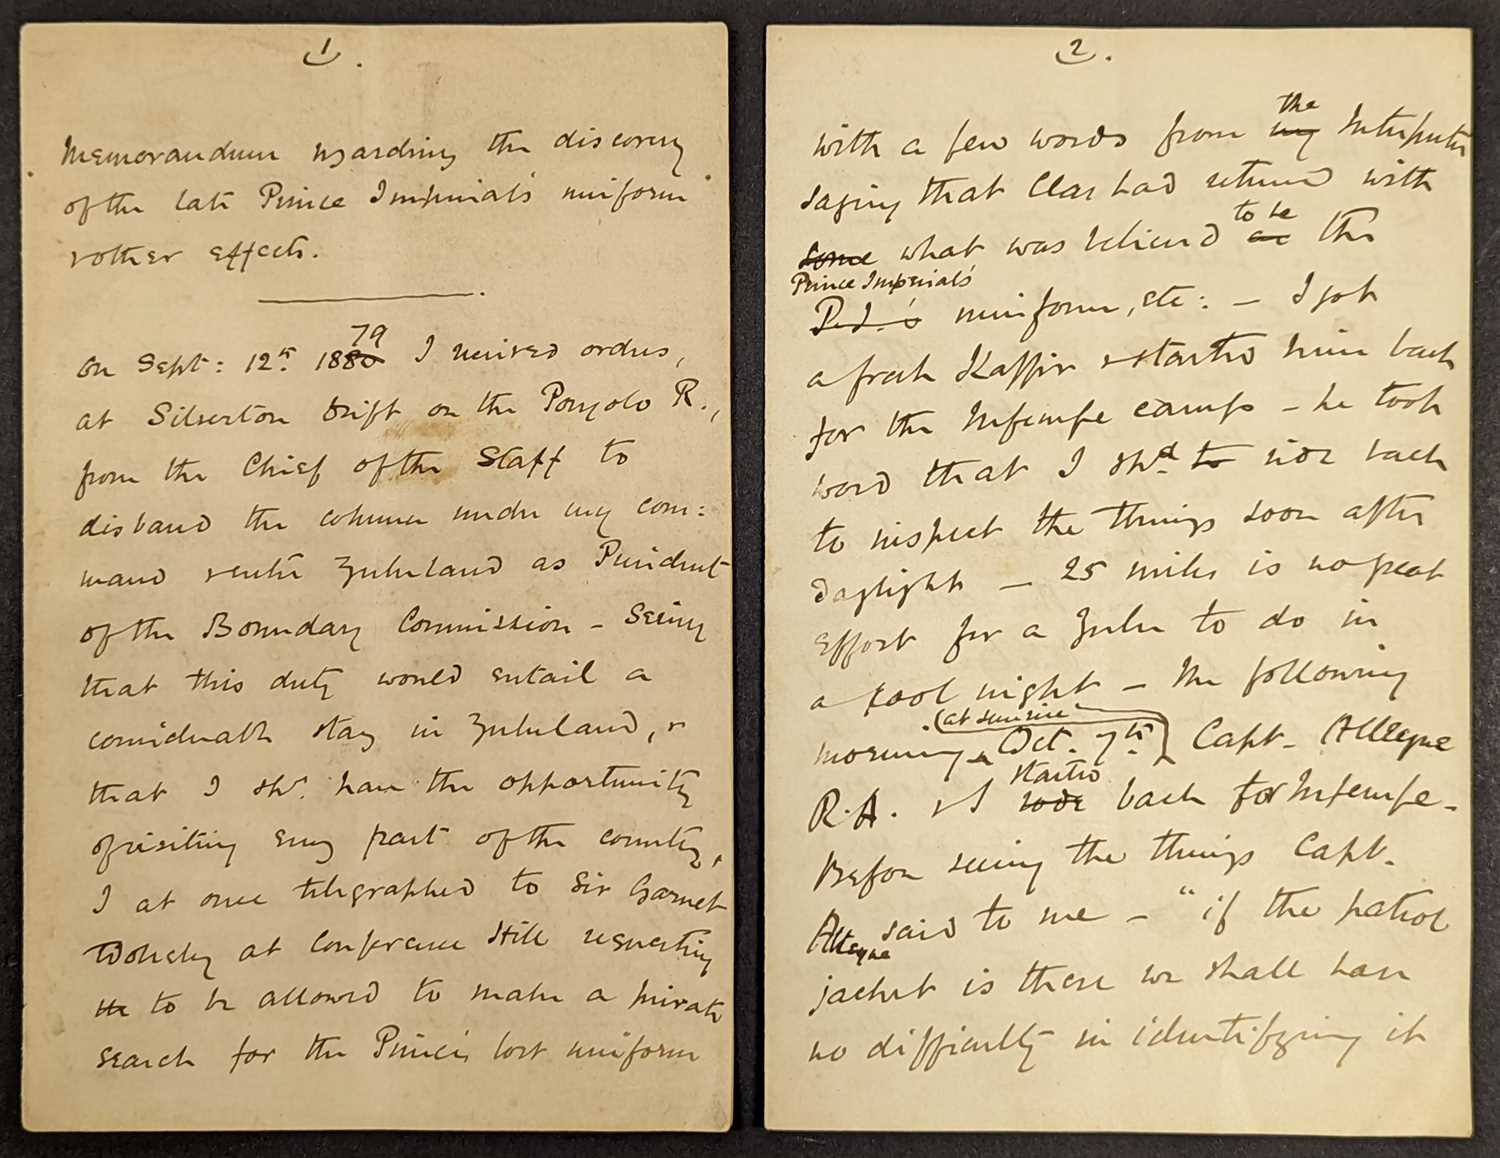 1.
Memorandum regarding the discovery
of the late Prince Imperial's uniform
& other effects.
79
On Sept: 12th. 1880 I received orders,
at Silverton Drift on the Pongolo R.,
from the Chief of the Staff to
disband the column under my com:
mand & enter Zululand as President
of the Boundary Commission - Seeing
that this duty would entail a
considerable stay in Zululand, &
that I shd. have the opportunity
of visiting every part of the country,
I at once telegraphed to Sir Garnet
Wolseley at Conference Hill requesting
to be allowed to make a private
search for the Prince's lost uniform
2.
the
with a few words from my Interpreter
saying that Clas had returned with
to be
some what was believed as the
Prince Imperial's
P.I.'s uniform, etc: - I got
a fresh Kaffir & started him back
for the camp - he took
word that I shd. to ride back
to inspect the things soon after
daylight - 25 miles is no great
effort for a Zulu to do in
a cool night - The following
(at sunrise)
morning, Oct. 7th. Capt. Alleyne
started
R.A. & I rode back for
Before seeing the things Capt.
Alleyne said to me - "if the patrol
jacket is there we shall have
no difficulty in identifying it